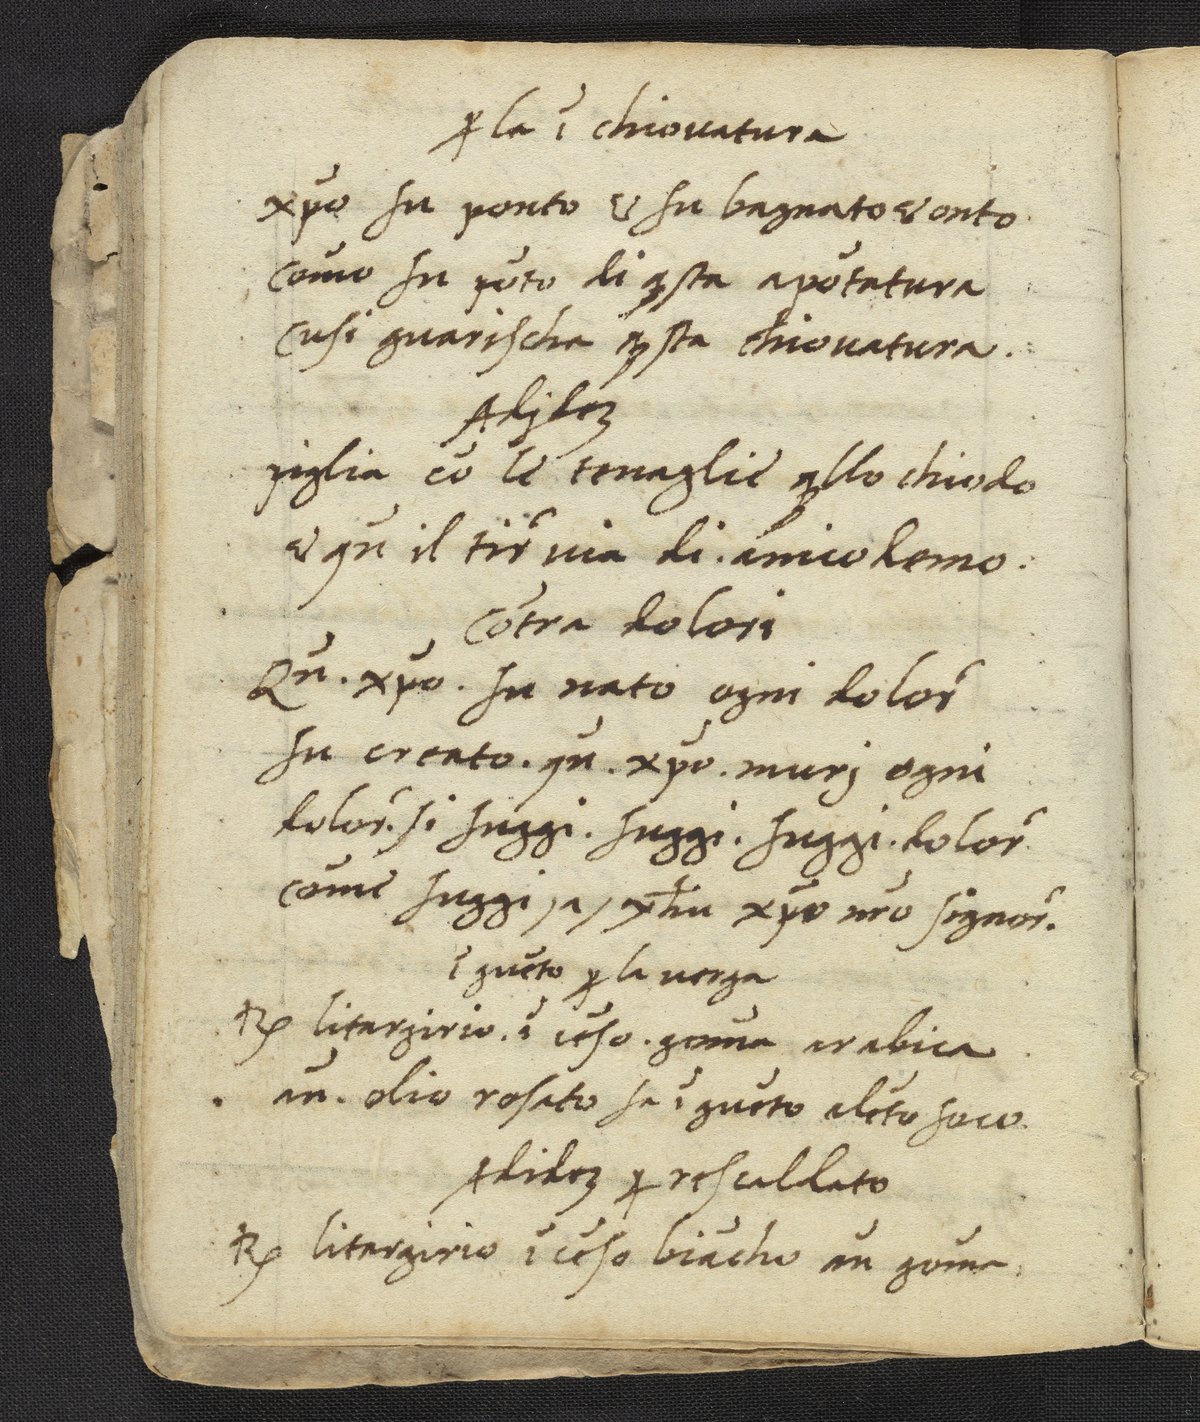 ꝑ la ī chiouatura
xp̄o fu ponto e fu bagnato e onto
Come fu pōto di qsta apōtatura
Cusi guarischa qsta chiouatura.
Adjdeꝫ
piglia cō le tenaglie qllo chiodo
e qn̄ il tir̄ uia di. amicodemo.
Cōtra dolori
Qn̄. xp̄o. fu nato ogni dolor̄
fu creato. qn̄. xp̄o. murj ogni
dolor̄. si fuggi. fuggi. fuggi. dolor̄
come fuggi /a/ xp̄o nr̄o signor̄.
ī guēto ꝑ la uerga
℞ litargirio. ī cēso. goma arabica
an̄. olio rosato fa ī guēto alēto foco.
Adideꝫ ꝑ rescaldato
℞ litargirio ī cēso biācho an̄ goma